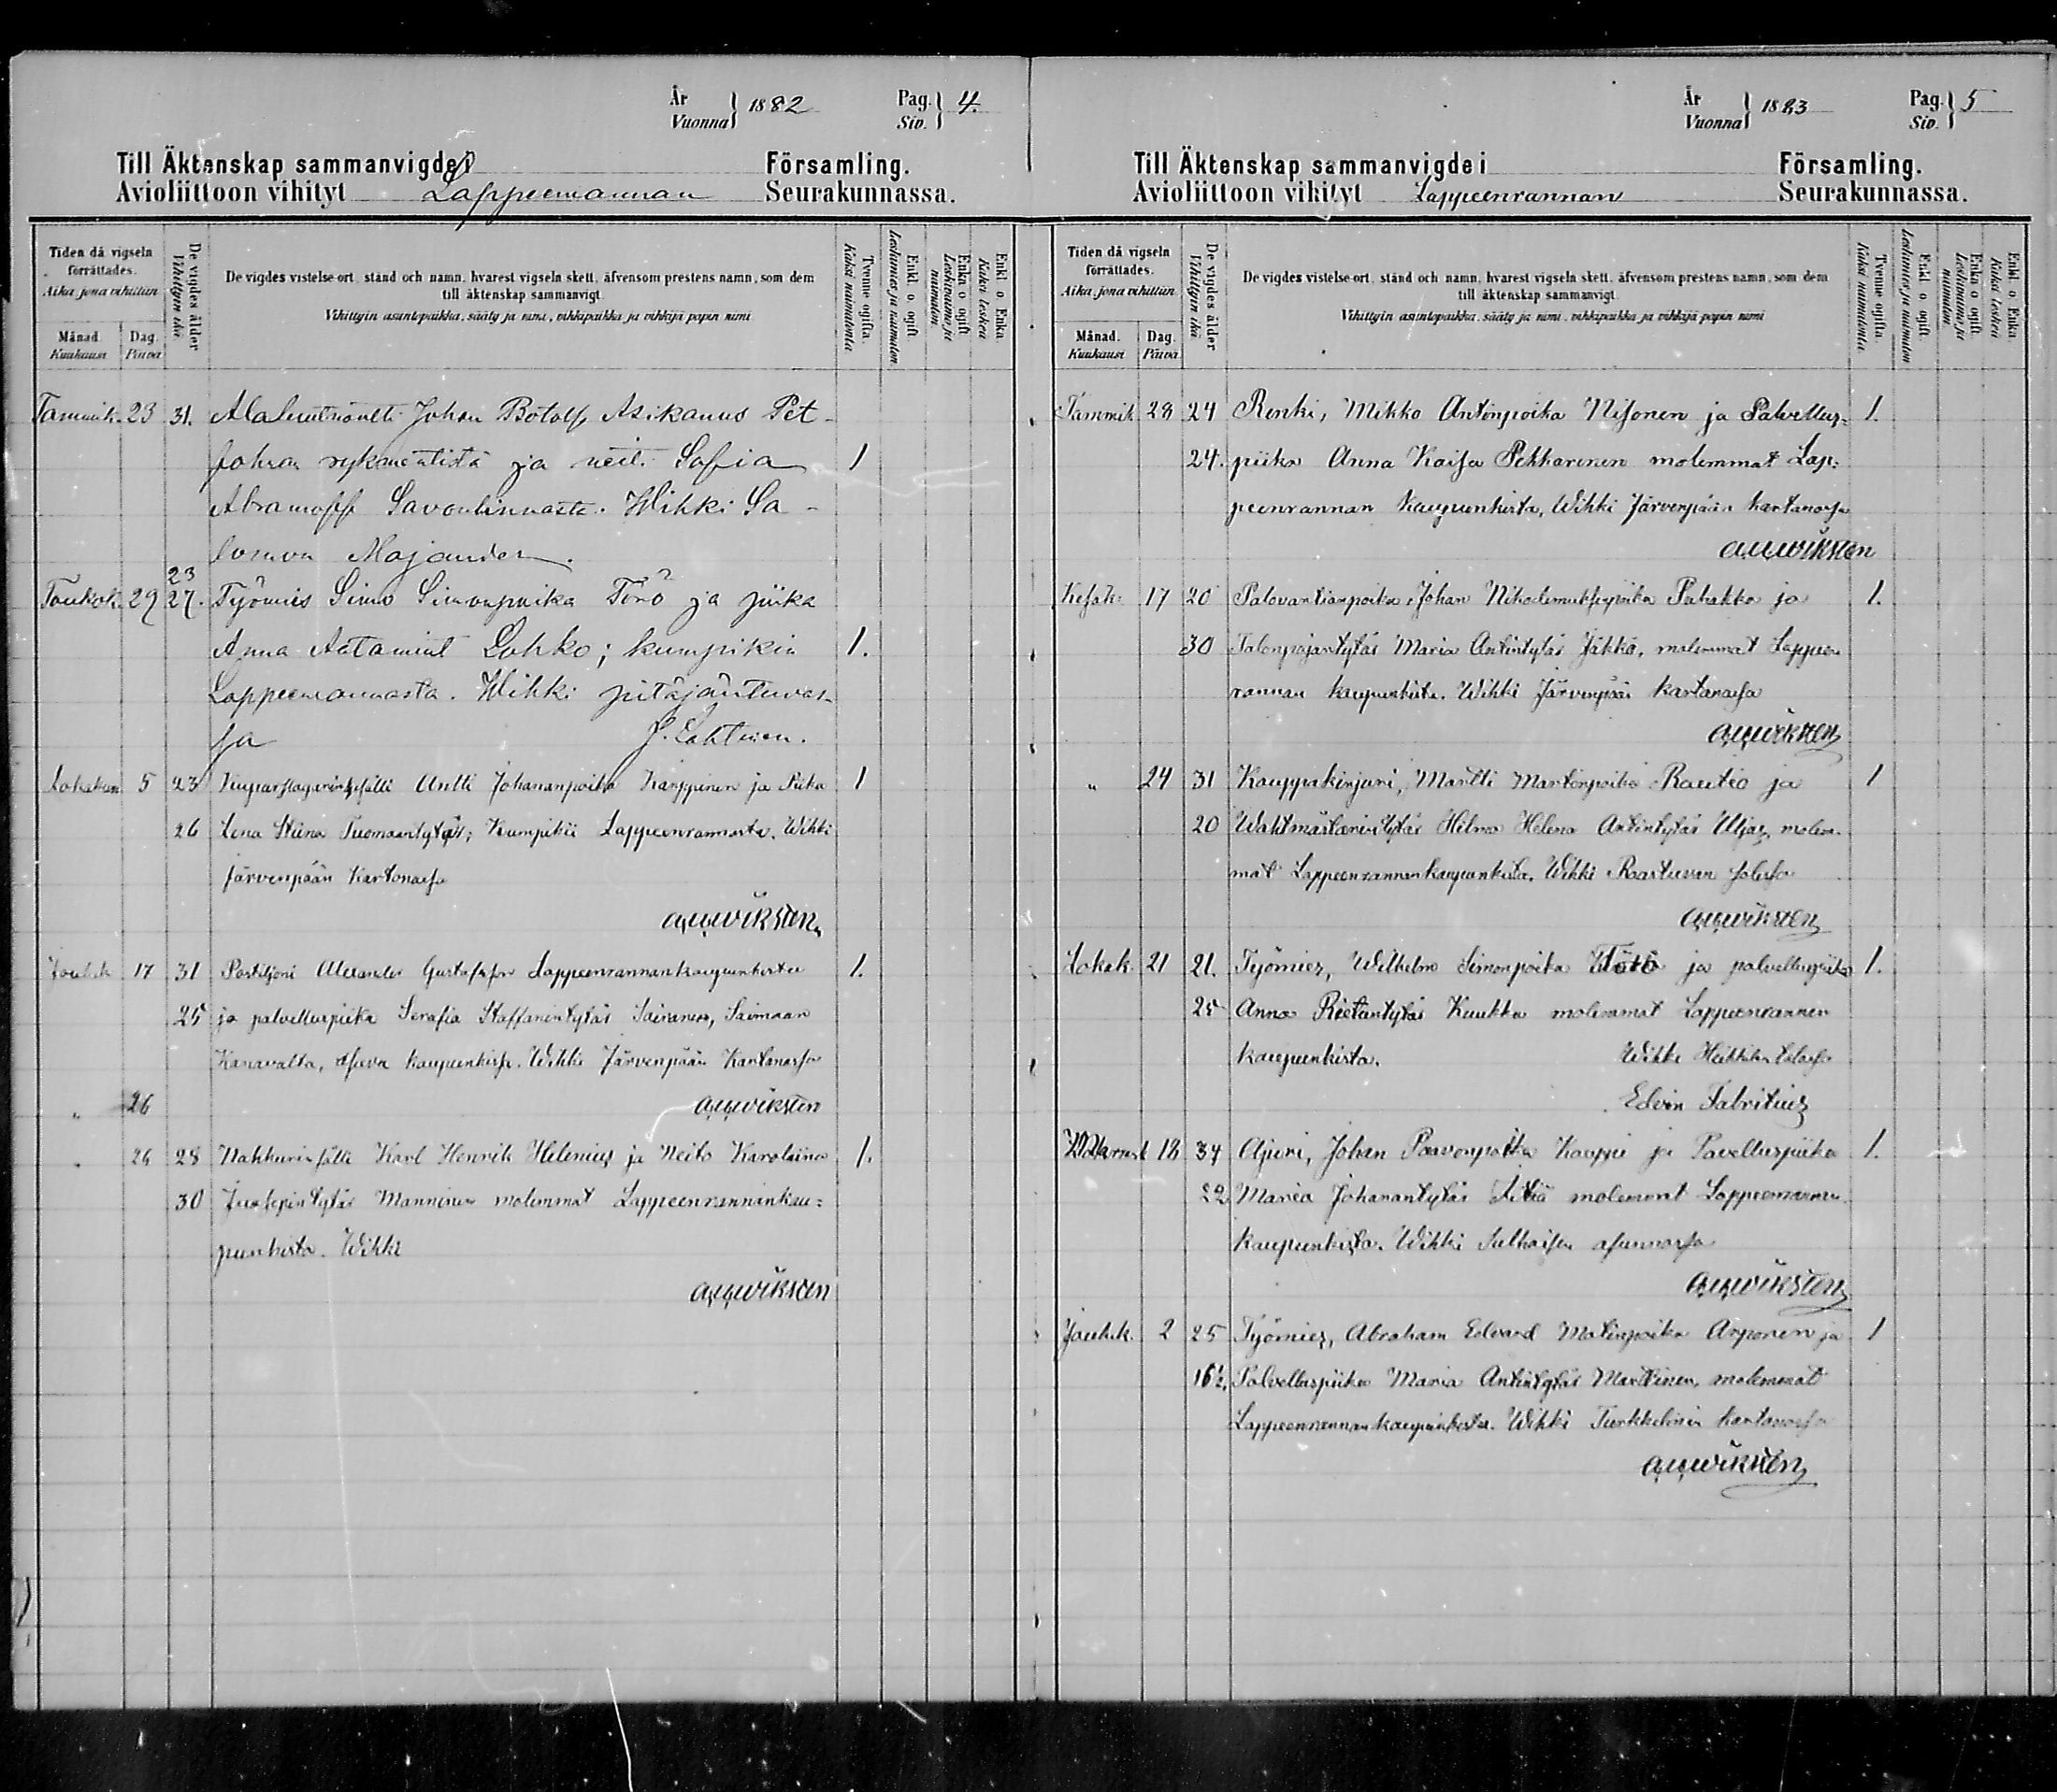 År
Vuonna
1882
Pag.
Siv.
4.
Till Äktenskap sammanvigde i Församling.
Avioliittoon vihityt Lappeenrannan Seurakunnassa.
Tiden då vigseln
förrättades.
Aika, jona vihittiin
Månad. Dag.
Kuukausi Päivä
De vigdes ålder
Vihittyin ikä
De vigdes vistelse-ort, stånd och namn, hvarest vigseln skett, äfvensom prestens namn, som dem
till äktenskap sammanvigt.
Vihittyin asuntopaikka, sääty ja nimi, vihkipaikka ja vihkijä papin nimi
Tvenne ogifta.
Kaksi naimatonta
Enkl. o. ogift.
Leskimies ja naimaton
Enka o. ogift.
Leskivaimo ja
naimaton.
Enkl. o. Enka.
Kaksi leskeä
Tammik. 23 31. Johan Botolf Asikanus Pet-
ja neit. Sofia 1
Abramoff Savonlinnasta. Wihki Sa-
lomon Majander.
23
Toukok. 29 27. Työmies Simo Simonpoika Törö ja piika
Anna Aatamint Lohko; kumpikin 1.
Lappeenrannasta. Wihki pitäjäntuvas-
sa J. Lahtinen.
Lokakuu 5 23 Antti Johananpoika Karppinen ja Piika 1
26 Lena Stiina Tuomaantytär; Kumpikii Lappeenrannasta. Wihki
Järvenpään Kartanossa
A. W. Wiksten
Jouluk 17 31 Postiljoni Alexander Gustafsson Lappeenrannankaupunkista 1.
25 ja palvelluspiika Serafia Staffanintytär Sairanen, Saimaan
Kanavalta, asuva kaupunkissa. Wihki Järvenpään Kartanossa
" 26 A. W. Wiksten
" 26 28 Nahkurinsälli Karl Henrik Helenius ja Neito Karolina 1.
30 Juosepintytär Manninen molemmat Lappeenrannankau=
punkista. Wihki
A. W. Wiksten
År
Vuonna
1883
Pag.
Siv.
5
Till Äktenskap sammanvigde i Församling.
Avioliittoon vihityt Lappeenrannan Seurakunnassa.
Tiden då vigseln
förrättades.
Aika, jona vihittiin
Månad. Dag.
Kuukausi Päivä
De vigdes ålder
Vihittyin ikä
De vigdes vistelse-ort, stånd och namn, hvarest vigseln skett, äfvensom prestens namn, som dem
till äktenskap sammanvigt.
Vihittyin asuntopaikka, sääty ja nimi, vihkipaikka ja vihkijä papin nimi
Tvenne ogifta.
Kaksi naimatonta
Enkl. o. ogift.
Leskimies ja naimaton
Enka o. ogift.
Leskivaimo ja
naimaton.
Enkl. o. Enka.
Kaksi leskeä
Tammik 28 24 Renki, Mikko Antinpoika Nisonen ja Palvellus= 1.
24. piika Anna Kaisa Pekkarinen molemmat Lap=
peenrannan Kaupunkista, Wihki Järvenpään kartanossa
A. W. Wiksten
Kesäk. 17 20 Palovartianpoika, Johan Pahakka ja 1.
30 Talonpojantytär Maria Antintytär Jäkkö, molemmat Lappeen
rannan kaupunkista. Wihki Järvenpään kartanossa
A. W. Wiksten
" 24 31 Kauppakirjuri, Martti Martinpoika Rautio ja 1
20 Wahtmästarintytär Hilma Helena Antintytär Uljas, molem-
mat Lappeenrannankaupunkista. Wihki Raastuvan salissa
A. W. Wiksten
Lokak. 21 21. Työmies, Wilhelm Simonpoika Törö ja palvelluspiika 1.
25 Anna Kuukka molemmat Lappeenrannan
kaupunkista. Wihki Heikkilän talossa
Edvin Fabritius
Marrask 18 34 Ajuri, Johan Paavonpoika Kauppi ja Pavelluspiika 1.
22 Maria Johanantytär molemmat Lappeenrannan
kaupunkista. Wihki asunnossa
A. W. Wiksten
Jouluk. 2 25 Työmies, Abraham Edvard Matinpoika Arponen ja 1
16½. Palvelluspiika Maria Antintytär Marttinen, molemmat
Lappeenrannankaupunkista. Wihki kartanossa
A. W. Wiksten